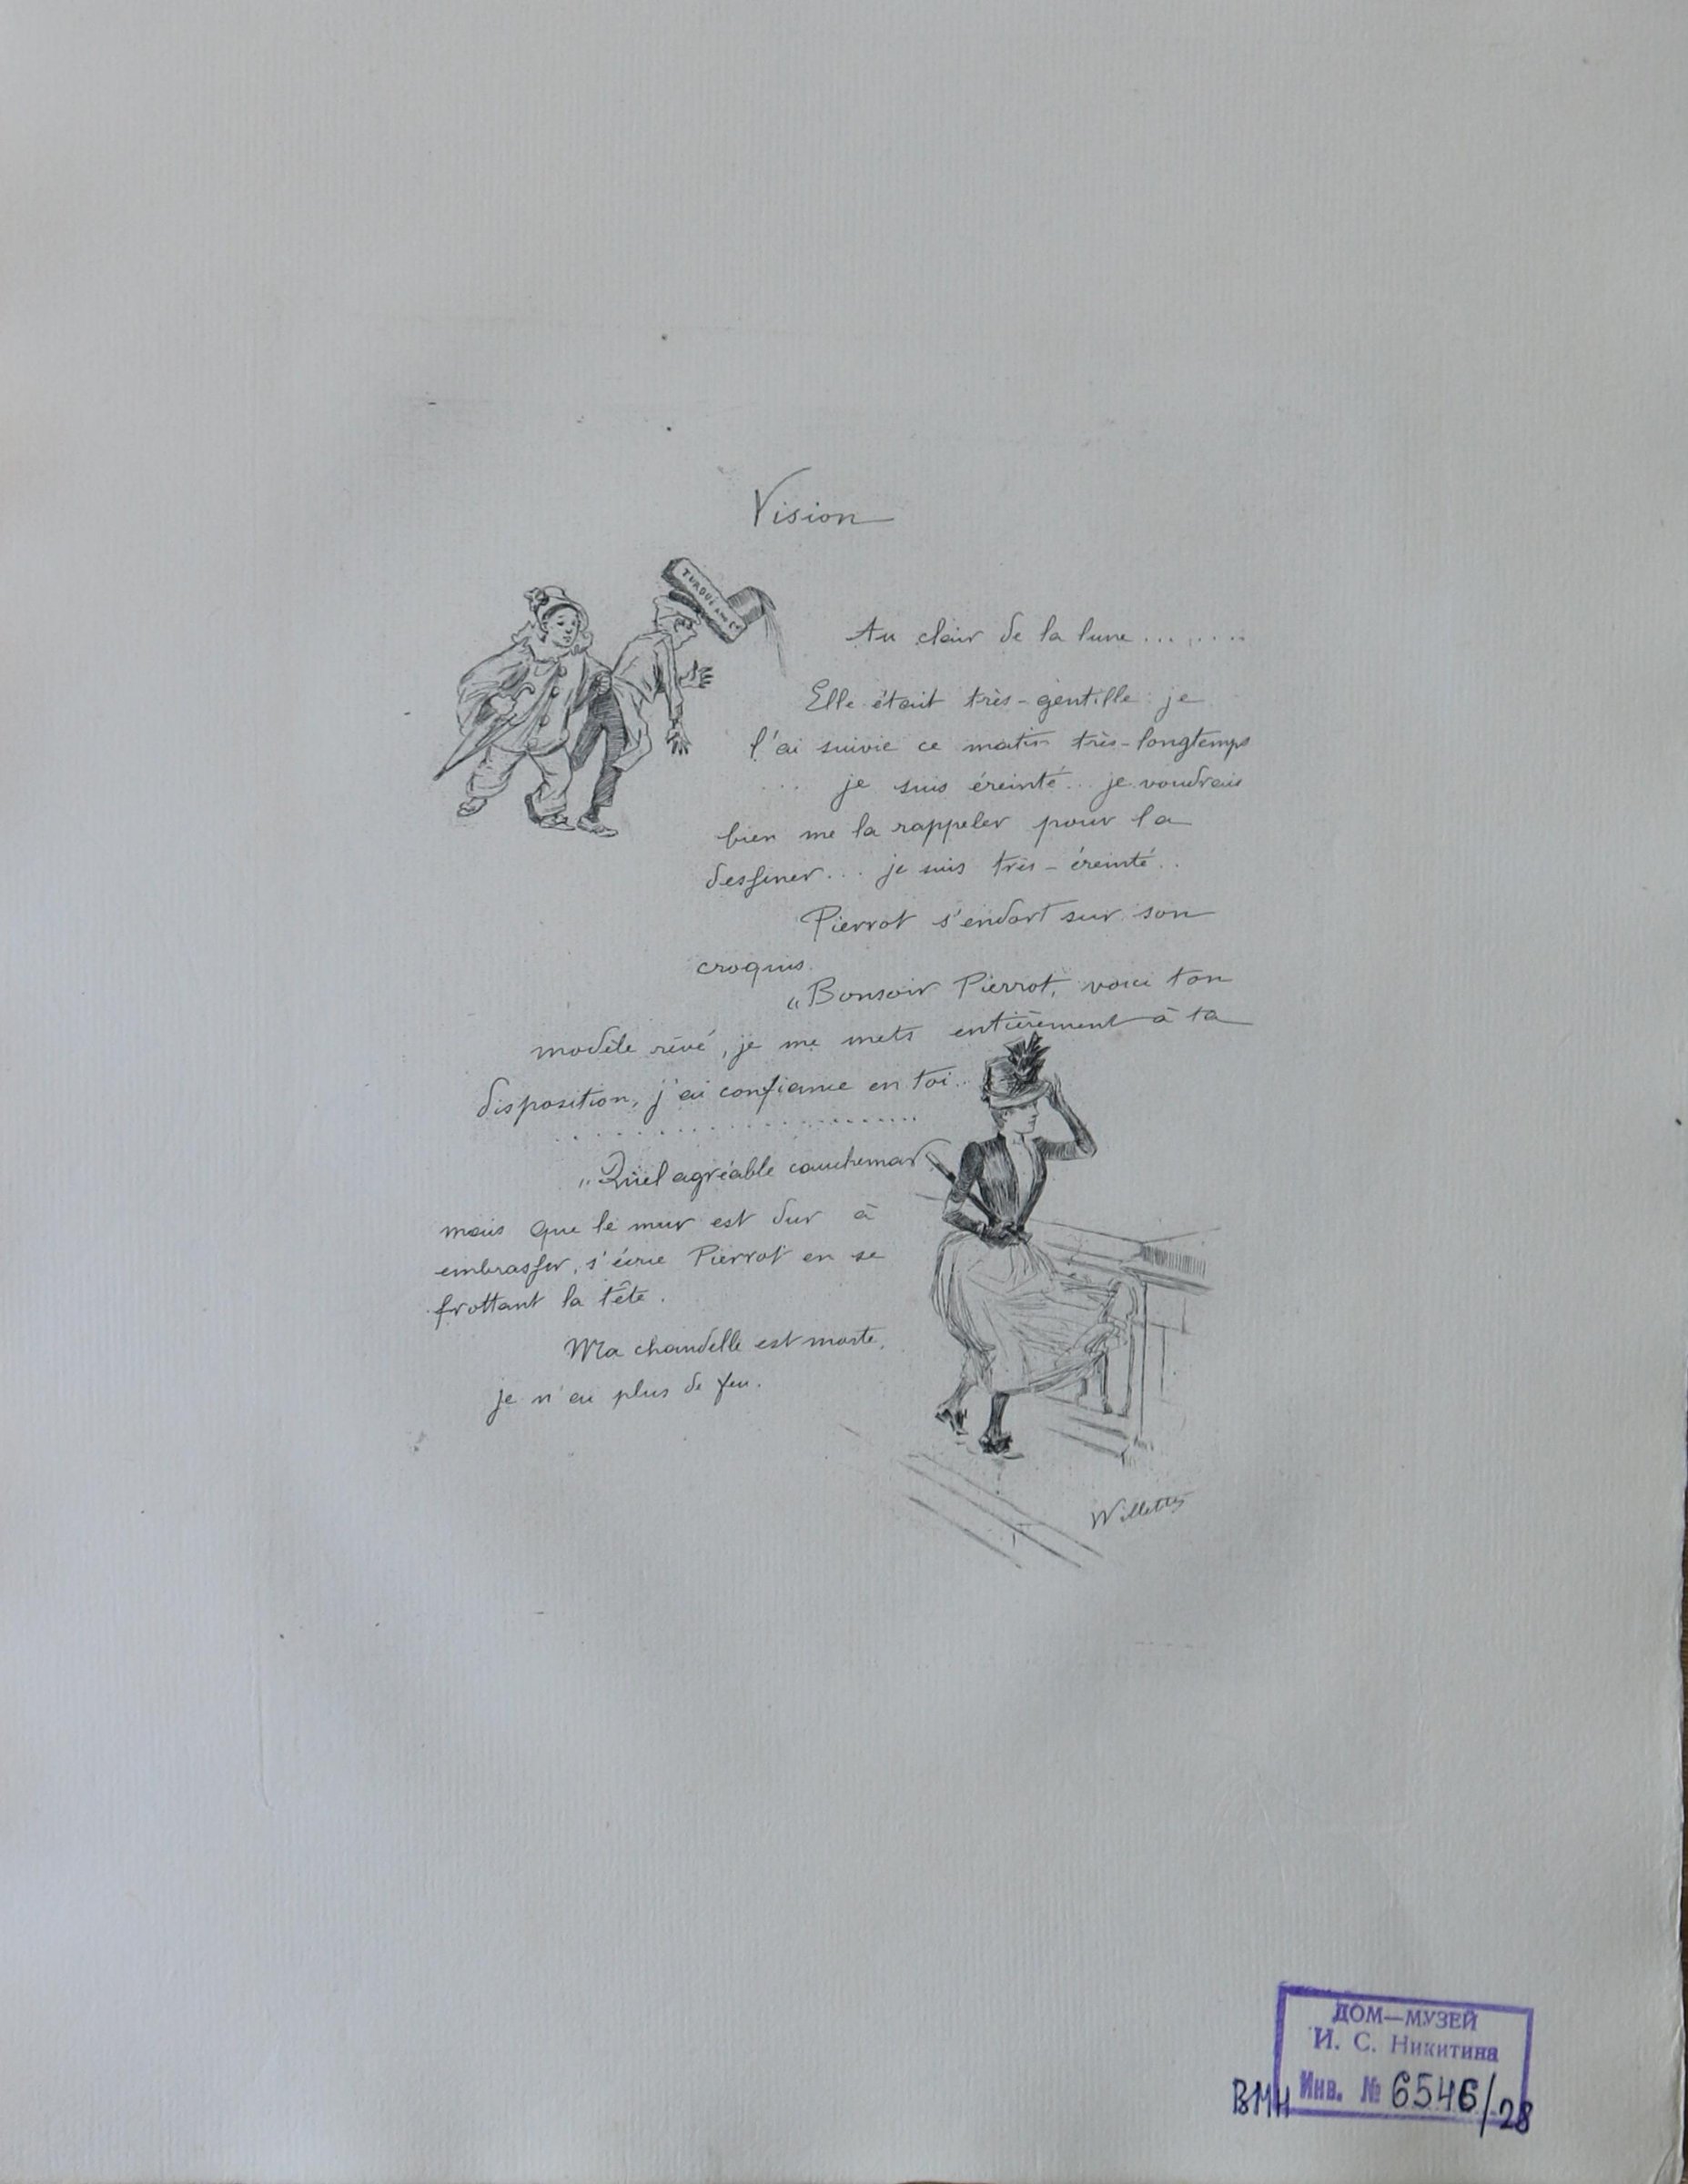 Vision
TURQUE
Au clair de la lune ........
Elle était très-gentille : je
l'ai suivie ce matin très-longtemps
... je suis éreinté... je voudrais
bien me la rappeler pour la
dessiner... je suis très-éreinté..
Pierrot s'endort sur son
croquis.
„Bonsoir Pierrot, voici ton
modèle rêvé, je me mets entièrement à ta
disposition, j'ai confiance en toi..
„Quel agréable cauchemar
mais que le mur est dur à
embrasser, s'écrie Pierrot en se
frottant la tête.
Ma chandelle est morte,
je n'ai plus de feu.
Willette
ДОМ—МУЗЕЙ
И. С. Никитина
ВМН Инв. № 6546/28